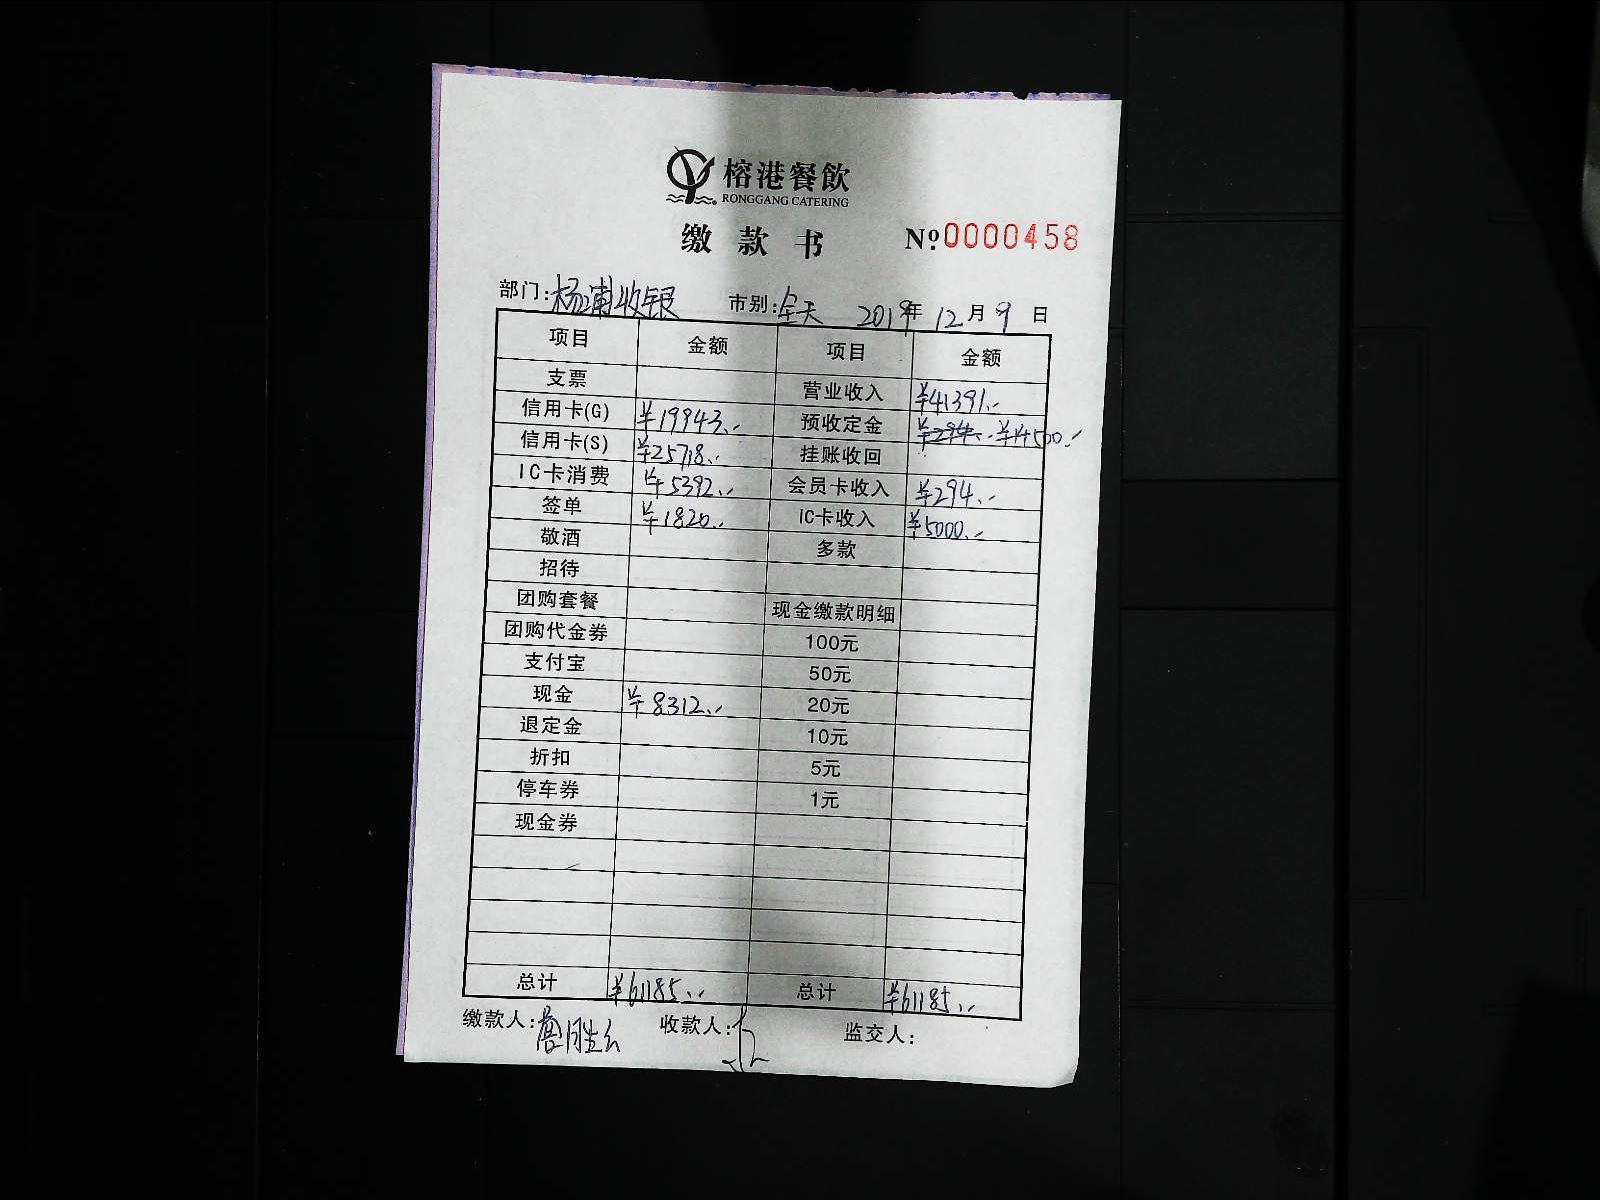 榕港餐飲
RONGGANG CATERING
缴款书 №0000458
部门:杨浦收银 市别:全天 2019年12月9日
项目 金额 项目 金额
支票 营业收入 ¥41391.-
信用卡(G) ¥19943.- 预收定金 ¥294.- ¥14500.-
信用卡(S) ¥25718.- 挂账收回
IC卡消费 ¥5392.- 会员卡收入 ¥294.-
签单 ¥1820.- IC卡收入 ¥5000.-
敬酒 多款
招待
团购套餐 现金缴款明细
团购代金券 100元
支付宝 50元
现金 ¥8312.- 20元
退定金 10元
折扣 5元
停车券 1元
现金券
总计 ¥61185.- 总计 ¥61185.-
缴款人: 收款人: 监交人: